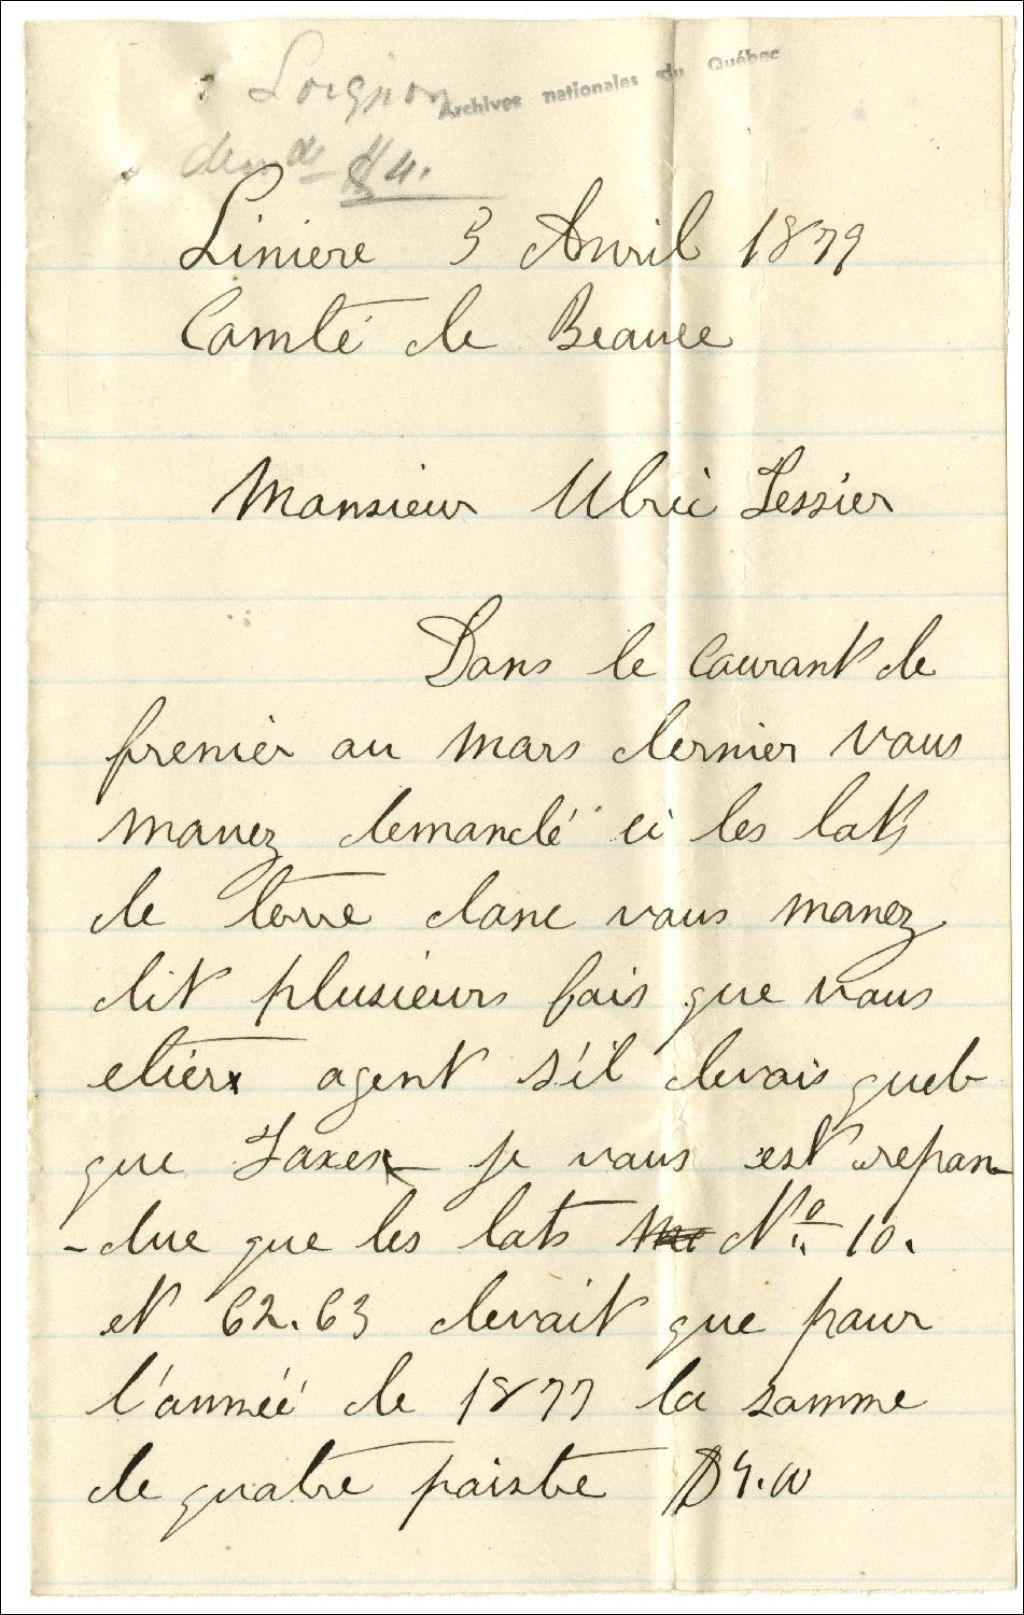 Loignon
Archives nationales du Québec
demde $4.
Liniere 3 Avril 1879
Comté de Beauce
Monsieur Ulric Tessier
Dans le courant de
premier au mars dernier vous
mavez demandé ci les lots
de terre donc vous mavez
dit plusieurs fois que vous
etier agent s'il devais quel-
que Taxes je vous est repon-
-due que les lots No. 10.
et 62.63 devait que pour
l'année de 1877 la somme
de quatre paistre $4.00